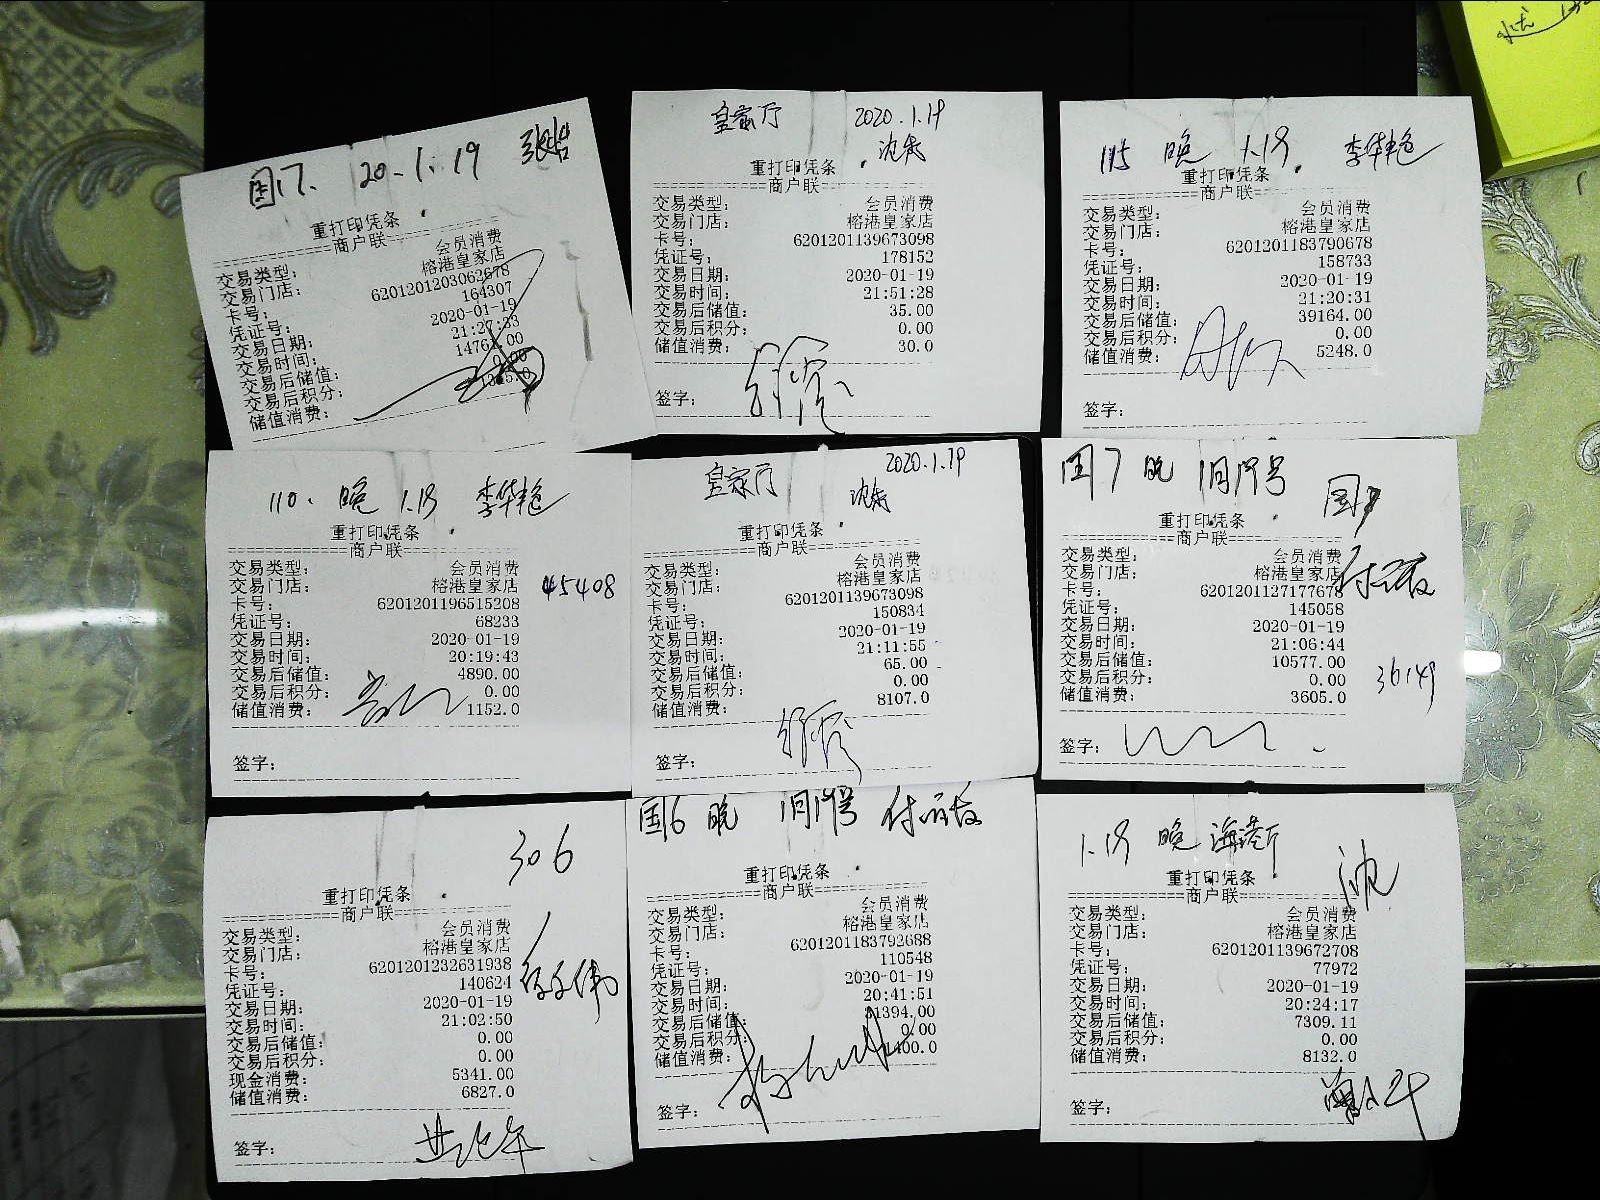 国17. 20-1.19
重打印凭条
商户联
交易类型： 会员消费
交易门店： 榕港皇家店
卡号： 6201201203062678
凭证号： 164307
交易日期： 2020-01-19
交易时间： 21:27:33
交易后储值：
交易后积分： 0.00
储值消费：
皇家厅 2020.1.19
沈
重打印凭条
商户联
交易类型： 会员消费
交易门店： 榕港皇家店
卡号： 6201201139673098
凭证号： 178152
交易日期： 2020-01-19
交易时间： 21:51:28
交易后储值： 35.00
交易后积分： 0.00
储值消费： 30.0
签字：
115 晚 1.19 李华艳
重打印凭条
商户联
交易类型： 会员消费
交易门店： 榕港皇家店
卡号： 6201201183790678
凭证号： 158733
交易日期： 2020-01-19
交易时间： 21:20:31
交易后储值： 39164.00
交易后积分： 0.00
储值消费： 5248.0
签字：
110. 晚 1.19 李华艳
重打印凭条
商户联
交易类型： 会员消费
交易门店： 榕港皇家店
45408
卡号： 6201201196515208
凭证号： 68233
交易日期： 2020-01-19
交易时间： 20:19:43
交易后储值： 4890.00
交易后积分： 0.00
储值消费： 1152.0
签字：
皇家厅 2020.1.19
沈
重打印凭条
商户联
交易类型： 会员消费
交易门店： 榕港皇家店
卡号： 6201201139673098
凭证号： 150834
交易日期： 2020-01-19
交易时间： 21:11:55
交易后储值： 65.00
交易后积分： 0.00
储值消费： 8107.0
签字：
国7 晚 1月19号
国7
重打印凭条
商户联
交易类型： 会员消费
交易门店： 榕港皇家店
卡号： 6201201127177678
凭证号： 145058
交易日期： 2020-01-19
交易时间： 21:06:44
交易后储值： 10577.00
交易后积分： 0.00
36149
储值消费： 3605.0
签字：
306
重打印凭条
商户联
交易类型： 会员消费
交易门店： 榕港皇家店
卡号： 6201201232631938
凭证号： 140624
交易日期： 2020-01-19
交易时间： 21:02:50
交易后储值： 0.00
交易后积分： 0.00
现金消费： 5341.00
储值消费： 6827.0
签字：
国6 晚 1月19号
重打印凭条
商户联
交易类型： 会员消费
交易门店： 榕港皇家店
卡号： 6201201183792688
凭证号： 110548
交易日期： 2020-01-19
交易时间： 20:41:51
交易后储值： 31394.00
交易后积分： 0.00
储值消费：
签字：
1.19 晚 海港厅 沈
重打印凭条
商户联
交易类型： 会员消费
交易门店： 榕港皇家店
卡号： 6201201139672708
凭证号： 77972
交易日期： 2020-01-19
交易时间： 20:24:17
交易后储值： 7309.11
交易后积分： 0.00
储值消费： 8132.0
签字：